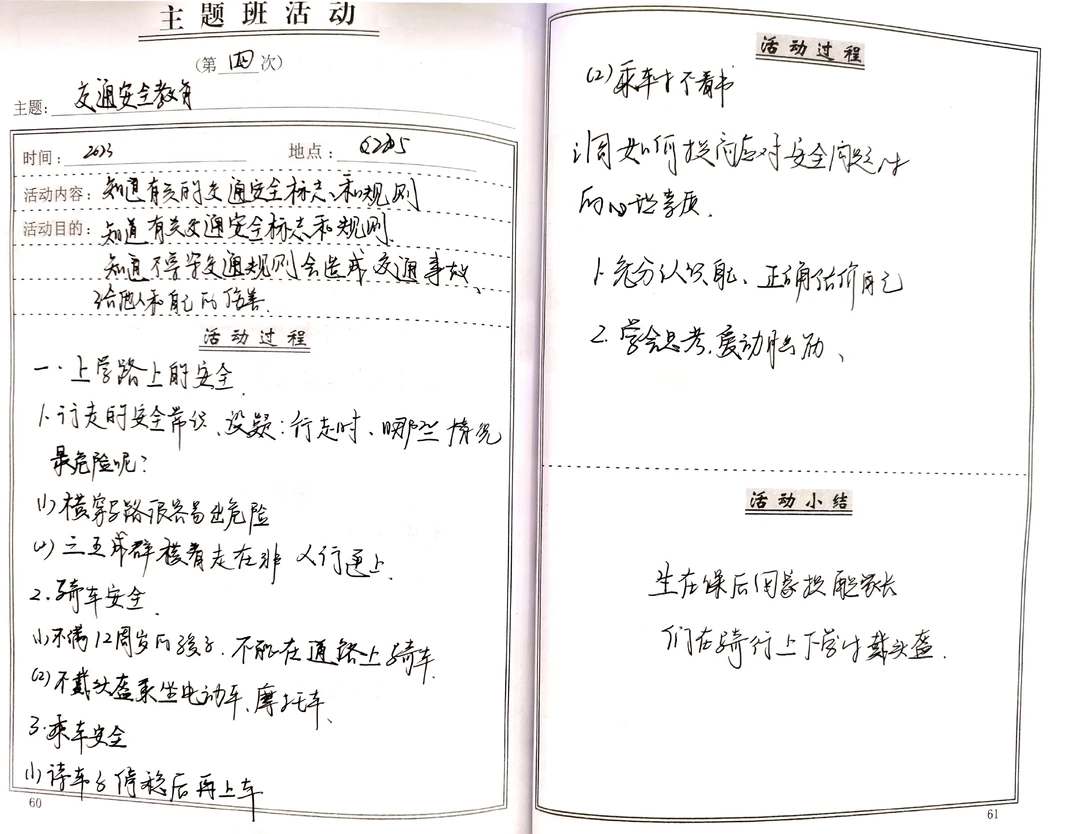 主题班活动
(第 四 次)
主题: 交通安全教育
时间: 2023 地点:
活动内容: 知道有关的交通安全标志、和规则
活动目的: 知道有关交通安全标志和规则.
知道不遵守交通规则会造成交通事故、
给他人和自己的伤害.
活动过程
一.上学路上的安全.
1.行走的安全常识、设疑:行走时、哪些情况
最危险呢?
(1)横穿马路很容易出危险
(2)三五成群横着走在非人行道上.
2.骑车安全.
(1)不满12周岁的孩子.不能在道路上骑车.
(2)不戴头盔乘坐电动车、摩托车、
3.乘车安全
(1)待车子停稳后再上车
60
活动过程
(2)乘车时不看书
如何提高应对安全问题时
的心理素质.
1.充分认识自己、正确估价自己
2.学会思考.爱动脑筋、
活动小结
生在课后回家提醒家长
们在骑行上下学时戴头盔.
61